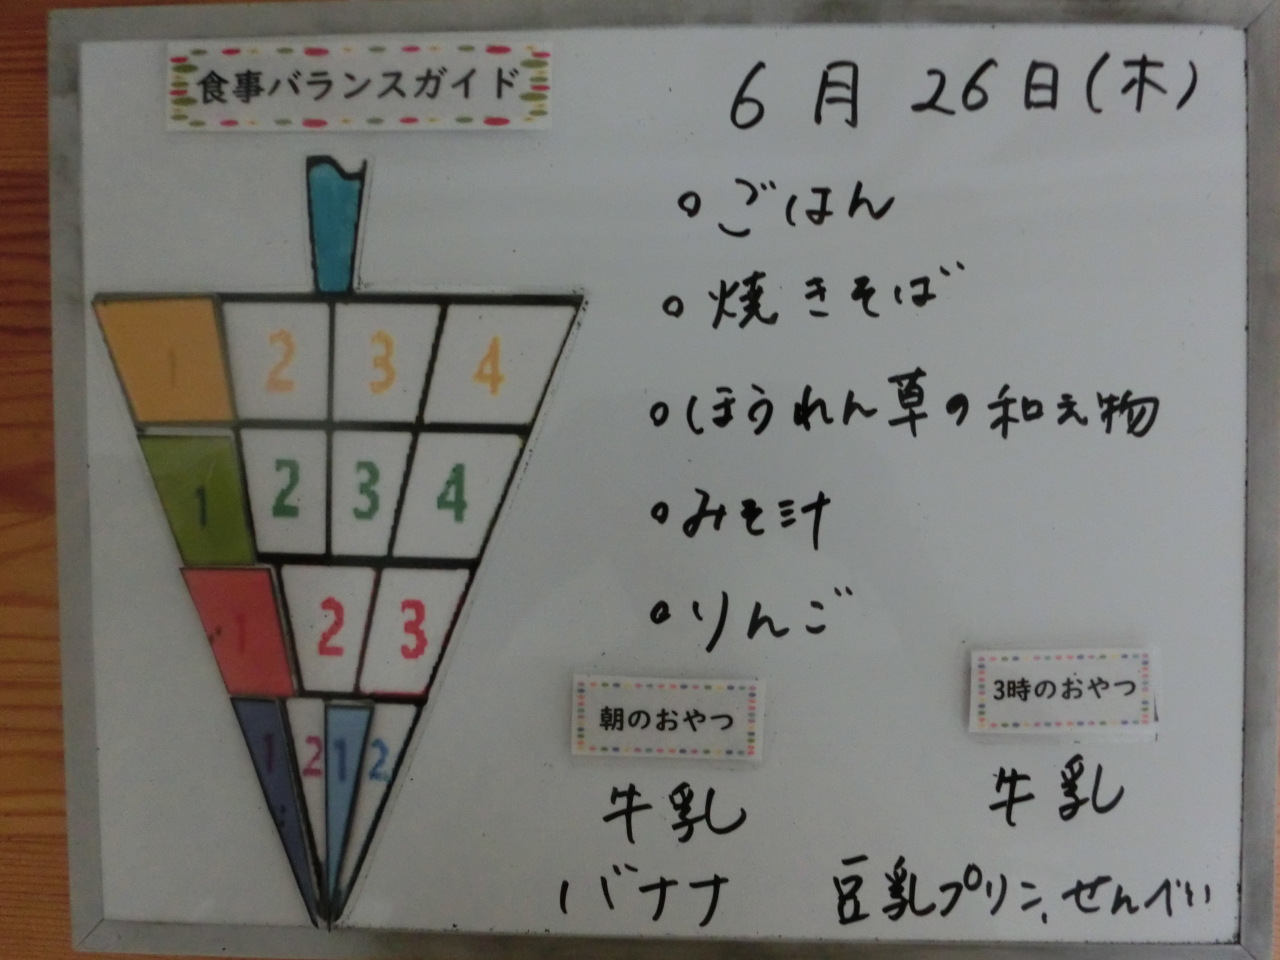 食事バランスガイド
6月26日(木)
ごはん
焼きそば
ほうれん草の和え物
みそ汁
りんご
1 2 3 4
1 2 3 4
1 2 3
1 2 1 2
朝のおやつ
牛乳
バナナ
3時のおやつ
牛乳
豆乳プリン、せんべい